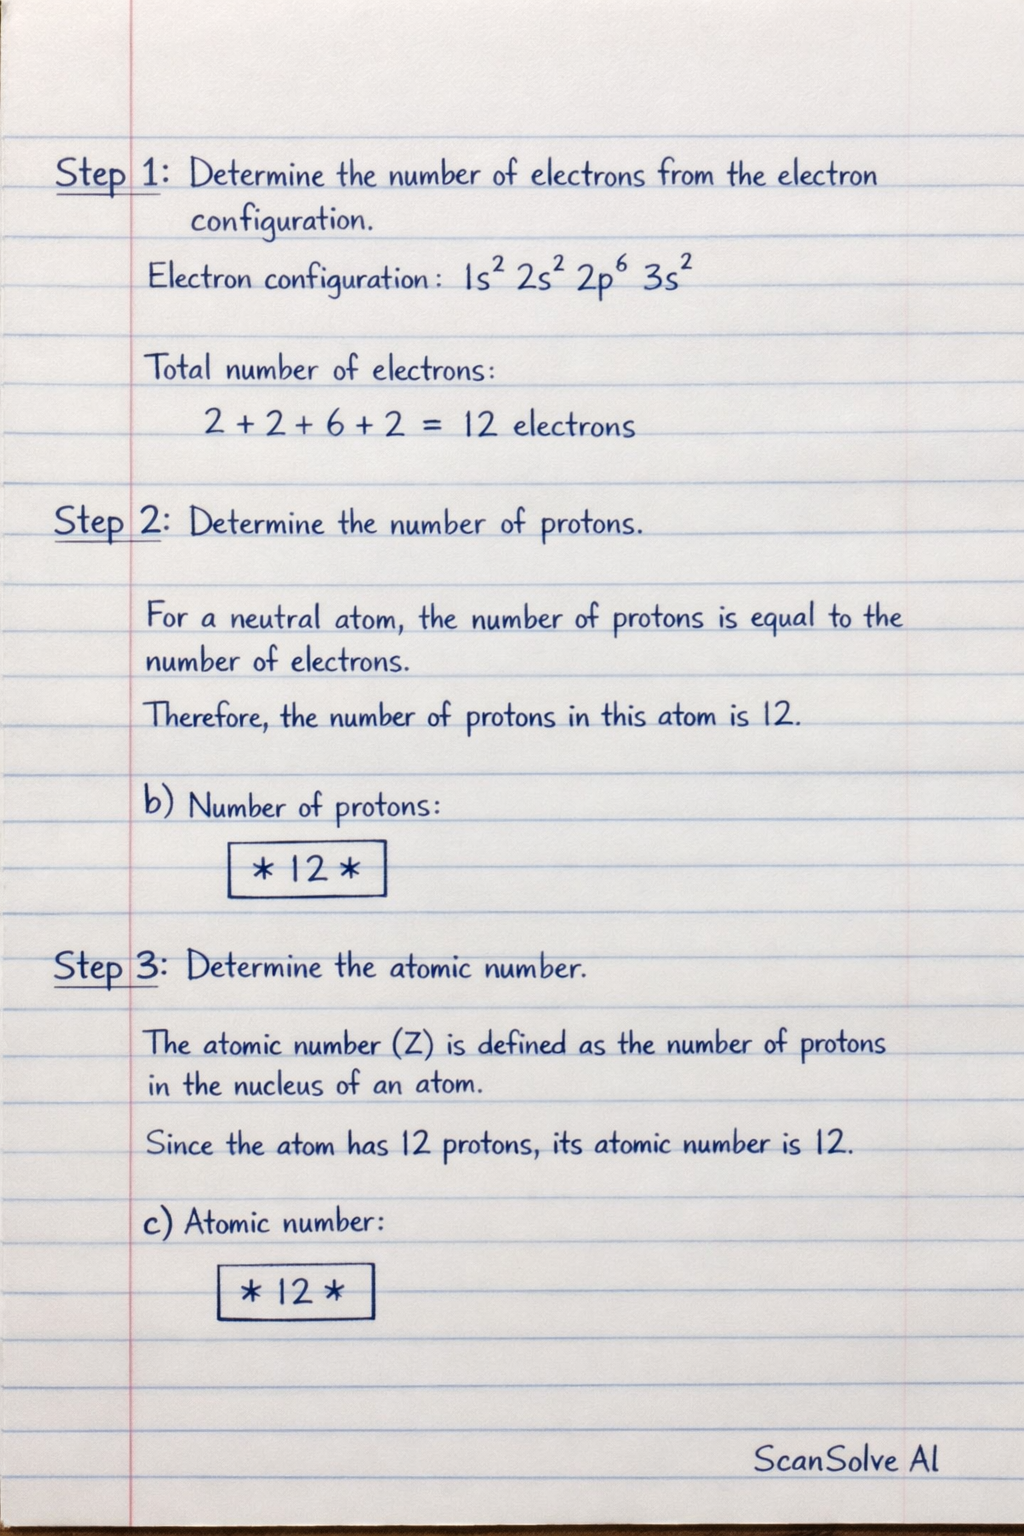 Step 1: Determine the number of electrons from the electron
configuration.
Electron configuration: 1s² 2s² 2p⁶ 3s²
Total number of electrons:
2 + 2 + 6 + 2 = 12 electrons
Step 2: Determine the number of protons.
For a neutral atom, the number of protons is equal to the
number of electrons.
Therefore, the number of protons in this atom is 12.
b) Number of protons:
* 12 *
Step 3: Determine the atomic number.
The atomic number (Z) is defined as the number of protons
in the nucleus of an atom.
Since the atom has 12 protons, its atomic number is 12.
c) Atomic number:
* 12 *
ScanSolve AI